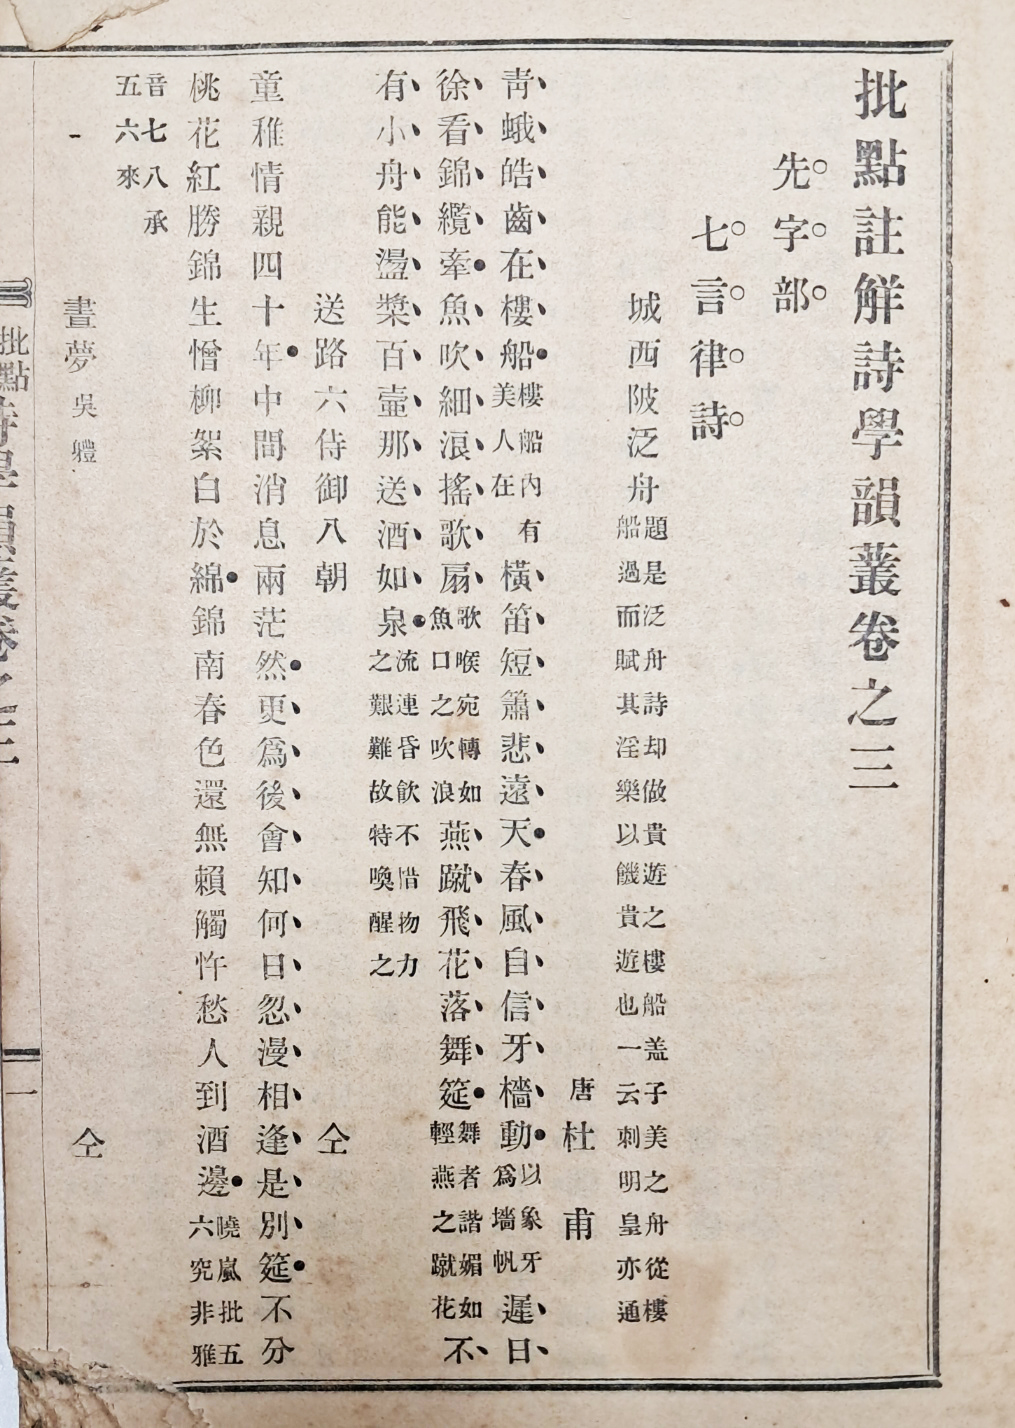 批點註觧詩學韻叢卷之三
先字部
七言律詩
城西陂泛舟題是泛舟詩却做貴遊之樓船盖子美之舟從樓船過而賦其淫樂以饑貴遊也一云刺明皇亦通
唐杜甫
靑蛾皓齒在樓船樓船內有美人在橫笛短簫悲遠天春風自信牙檣動以象牙爲墻帆遲日
徐看錦纜牽魚吹細浪搖歌扇歌喉宛轉如魚口之吹浪燕蹴飛花落舞筵舞者諧媚如輕燕之蹴花不
有小舟能盪槳百壷那送酒如泉流連昏飮不惜物力之艱難故特喚醒之
送路六侍御八朝 仝
童稚情親四十年中間消息兩茫然更爲後會知何日忽漫相逢是別筵不分
桃花紅勝錦生憎柳絮白於綿錦南春色還無賴觸忤愁人到酒邊曉嵐批五六究非雅
音七八承五六來
晝夢 吳軆 仝
批點
一